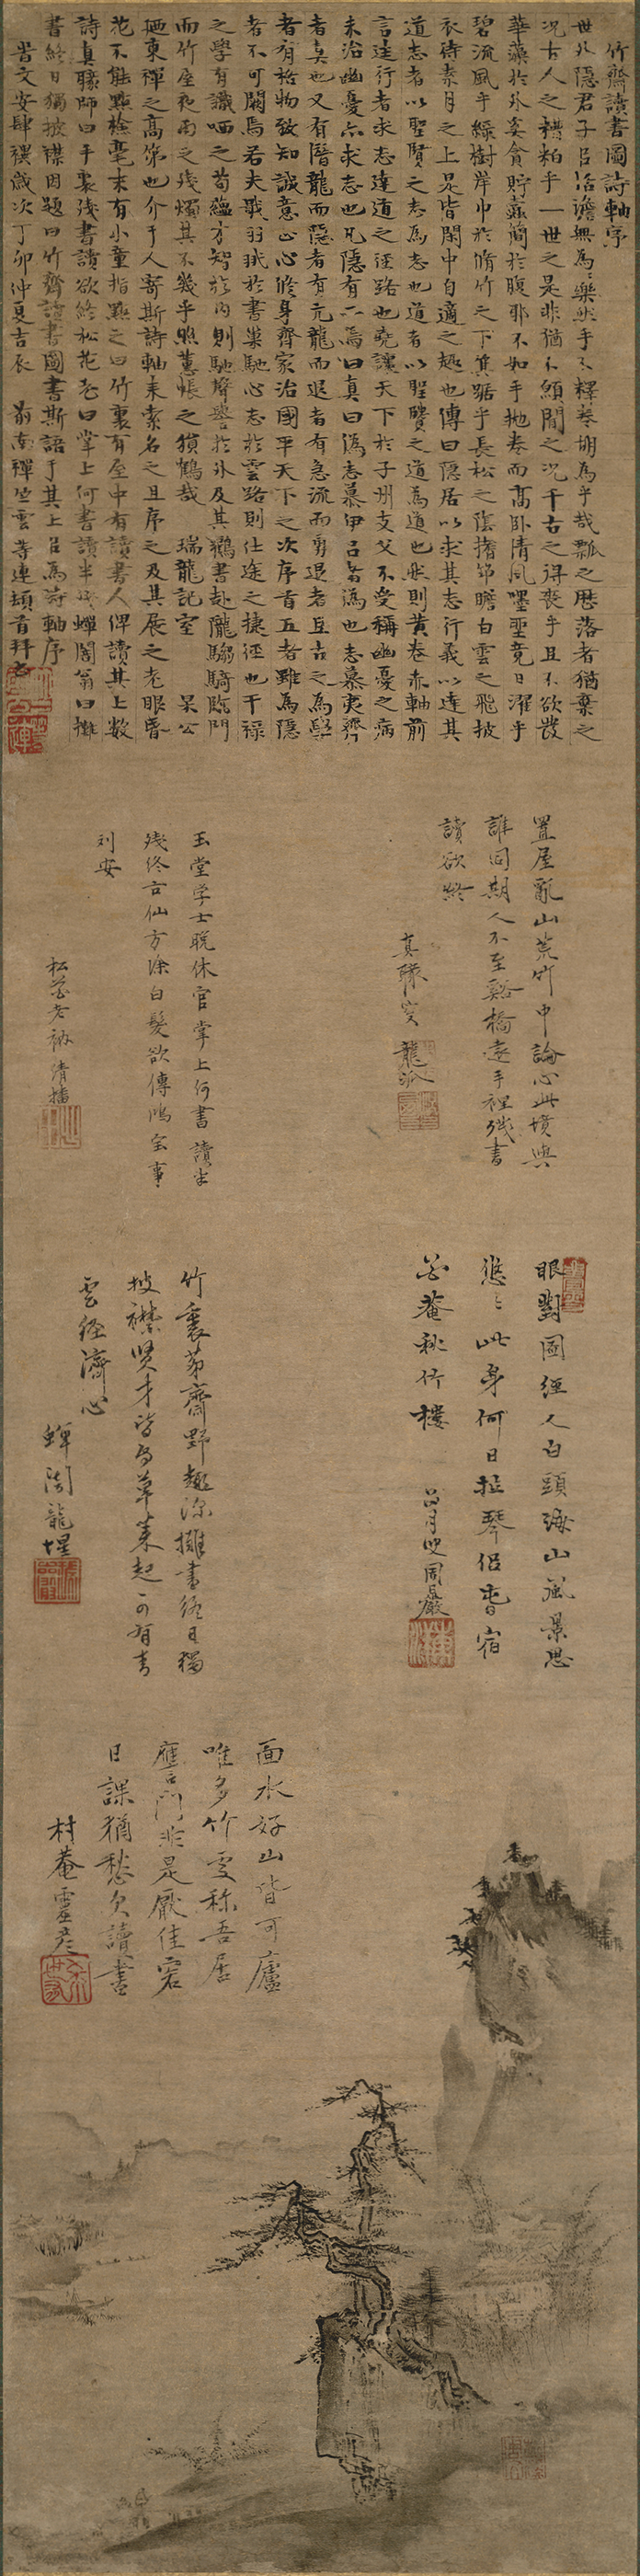 竹齋讀書圖詩軸序
世外隱君子呂治澹無為〻樂然乎手不釋卷胡為乎哉瓢之歷落者猶棄之
況古人之糟粕乎一世之是非猶不須聞之況千古之得喪乎且不欲發
華藻於外奚貪貯蠹簡於腹耶不如手抛卷而高臥清風嘿聖竟日濯乎
碧流風乎綠樹岸巾於脩竹之下箕踞乎長松之陰搘笻瞻白雲之飛披
衣待素月之上是皆閑中自適之趣也傳曰隱居以求其志行義以達其
道志者以聖賢之志為志也道者以聖賢之道為道也然則黃卷赤軸前
言往行者求志達道之徑路也堯讓天下於子州支父不受稱幽憂之病
未治幽憂亦求志也凡隱有六焉曰真曰偽志慕伊呂者偽也志慕夷齊
者真也又有潛龍而隱者有亢龍而退者有急流而勇退者且古之為學
者有格物致知誠意正心修身齊家治國平天下之次序首五者雖為隱
者不可闕焉若夫戢羽翼於書巢馳心志於雲路則仕途之捷徑也干祿
之學有識哂之苟蘊才智於內則馳聲譽於外及其鶴書赴隴騶騎臨門
而竹屋夜雨之殘燭其不幾乎照蕙帳之猿鶴哉 瑞龍記室 杲公
廼東禪之高弟也介于人寄斯詩軸來索名之且序之及其展之老眼昏
花不能點檢毫末有小童指點之曰竹裏有屋中有讀書人俾讀其上數
詩真樂師曰手裏殘書讀欲終松花老曰掌上何書讀半殘蟬闇翁曰攤
書終日獨披襟因題曰竹齋讀書圖書斯語于其上以為詩軸序
峕文安肆禩歲次丁卯仲夏吉辰 前南禪竺雲等連頓首拜書
置屋亂山荒竹中論心此境與
誰同期人不至谿橋遠手裡殘書
讀欲終
龍派
玉堂学士晚休官掌上何書讀半
殘終古仙方除白髮欲傳鴻宝事
刘安
松花老衲清播
眼對圖經人白頭海山風景思
悠〻此身何日拉琴侶
竹裏茆齋野趣深攤書終日獨
披襟賢才皆自草萊起可有青
雲經濟心
蟬闇龍惺
面水好山皆可廬
唯多竹處称吾居
應門非是厭佳客
日課猶愁欠讀書
村菴靈彦